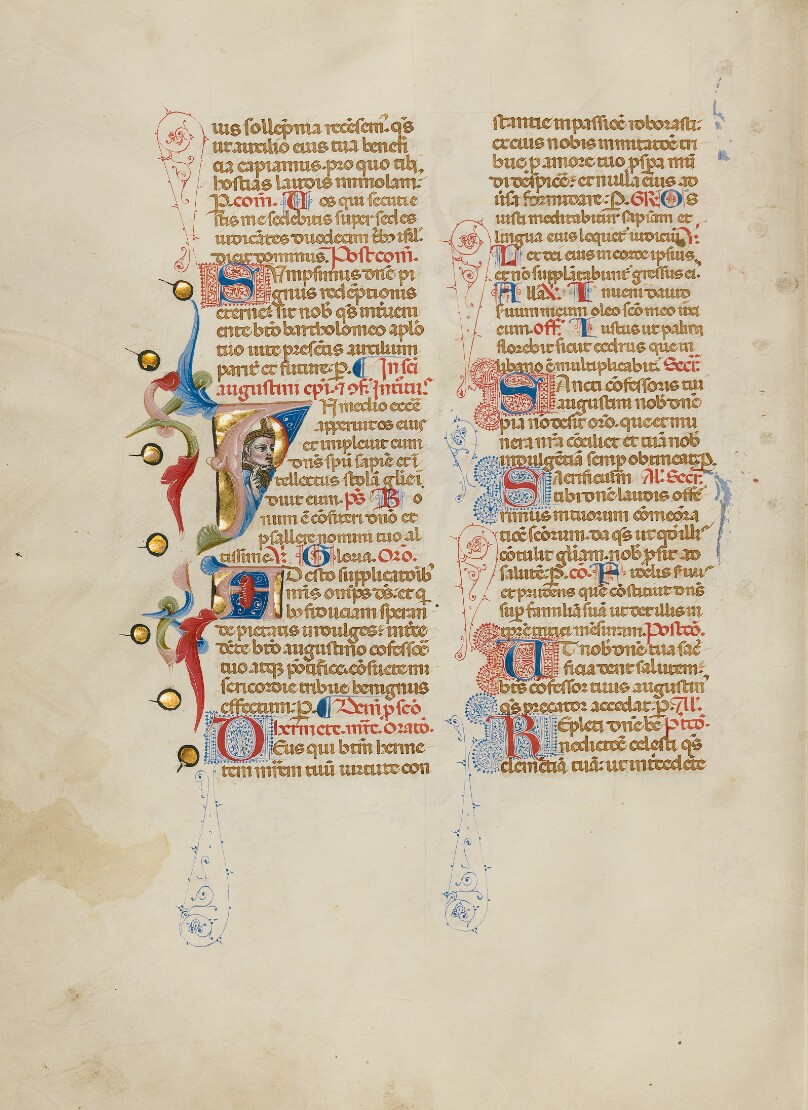 ius sollēpnia recēsem̄. q̄s
ut auxilio eius tua benefi
cia capiamus. pro quo tibi
hostias laudis immolam̄.
P. com̄. Uos qui secuti e
stis me sedebitis super sedes
iudicātes duodecim tr̄b isr̄l.
dicit dominus. Postcom̄.
Sūmpsimus dn̄e pi
gnus redēptionis
eterne: sit nob̄ q̄s interueni
ente bt̄o bartholomeo apl̄o
tuo uite presētis auxilium
parit̄ et future. P. In sc̄i
augustini ep̄i. ⁊ ꝯf̄. Introitus
IN medio ecc̄e
apperuit os eius
et impleuit eum
dn̄s sp̄u sapiē et ī
tellectus stolā gl̄ie ī
duit eum. p̄s Bo
num ē cōfiteri dn̄o et
psallere nomini tuo al
tissime. V̄. Gloria. Orō.
ADesto supplicatōib;
n̄r̄is om̄ps d̄s. et q̄
b; fiduciam speran
de pietatis indulges: interce
dete bt̄o augustino cōfessoē
tuo atq; pōtifice. cōsuete mi
sericordie tribue benignus
effectum. P. Dem p̄ sc̄o
hermete. m̄r̄e. Oratō.
DEus qui btm̄ herme
tem m̄r̄em tuū uirtute con
stantie in passiōe roborasti:
ex eius nobis imitatōe tri
bue p̄ amore tuo p̄sp̄a mū
di despicē: et nulla eius ad
uersa formidare. P. GR. Os
iusti meditabitur sapiām et
lingua eius loquet̄ iudiciū. V̄.
Lex dei eius in corde ipsius,
et nō supplātabunt̄ gressus ei.
Allax̄. Inueni dauid
seruum meum oleo sc̄o meo unxi
eum. off̄. Iustus ut palma
florebit sicut cedrus que in
libano ē multiplicabit̄. Secr̄.
Sancti cōfessoris tui
augustini nob̄ dn̄e
pia nō desit or̄o. que et mu
nera n̄r̄a cōciliet et tuā nob̄
indulgētiā semp̄ obtineat. P.
Sacrificium Al̄. Secr̄.
tibi dn̄e laudis offe
rimus in tuorum cōmemora
tiōe sc̄orum. da q̄s ut qd̄ illis
cōtulit gl̄iam. nob̄ p̄sit ad
salutē. P. cō. Fidelis seruus
et prudens quē cōstituit dn̄s
sup̄ familiā suā ut det illis in
tpr̄e tritici mēsuram. Postcō.
UT nob̄ dn̄e tua sac̄
ficia dent salutem:
bt̄s cōfessor tuus augustin̄
q̄s precator accedat. P. Al̄.
REpleti dn̄e be Pstcō.
nedictōe celesti q̄s
clemētiā tuā: ut intercedete